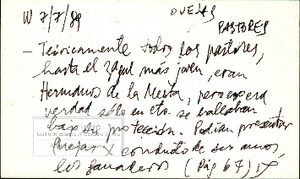 W 7/7/89
OVEJAS
PASTORES
- Teóricamente todos los pastores,
hasta el zagal más joven, eran
Hermanos de la Mesta, pero
verdad sólo en eso se hallaban
bajo su protección. Podían presentar
quejas x conducto de sus amos,
los ganaderos (Pág 67)